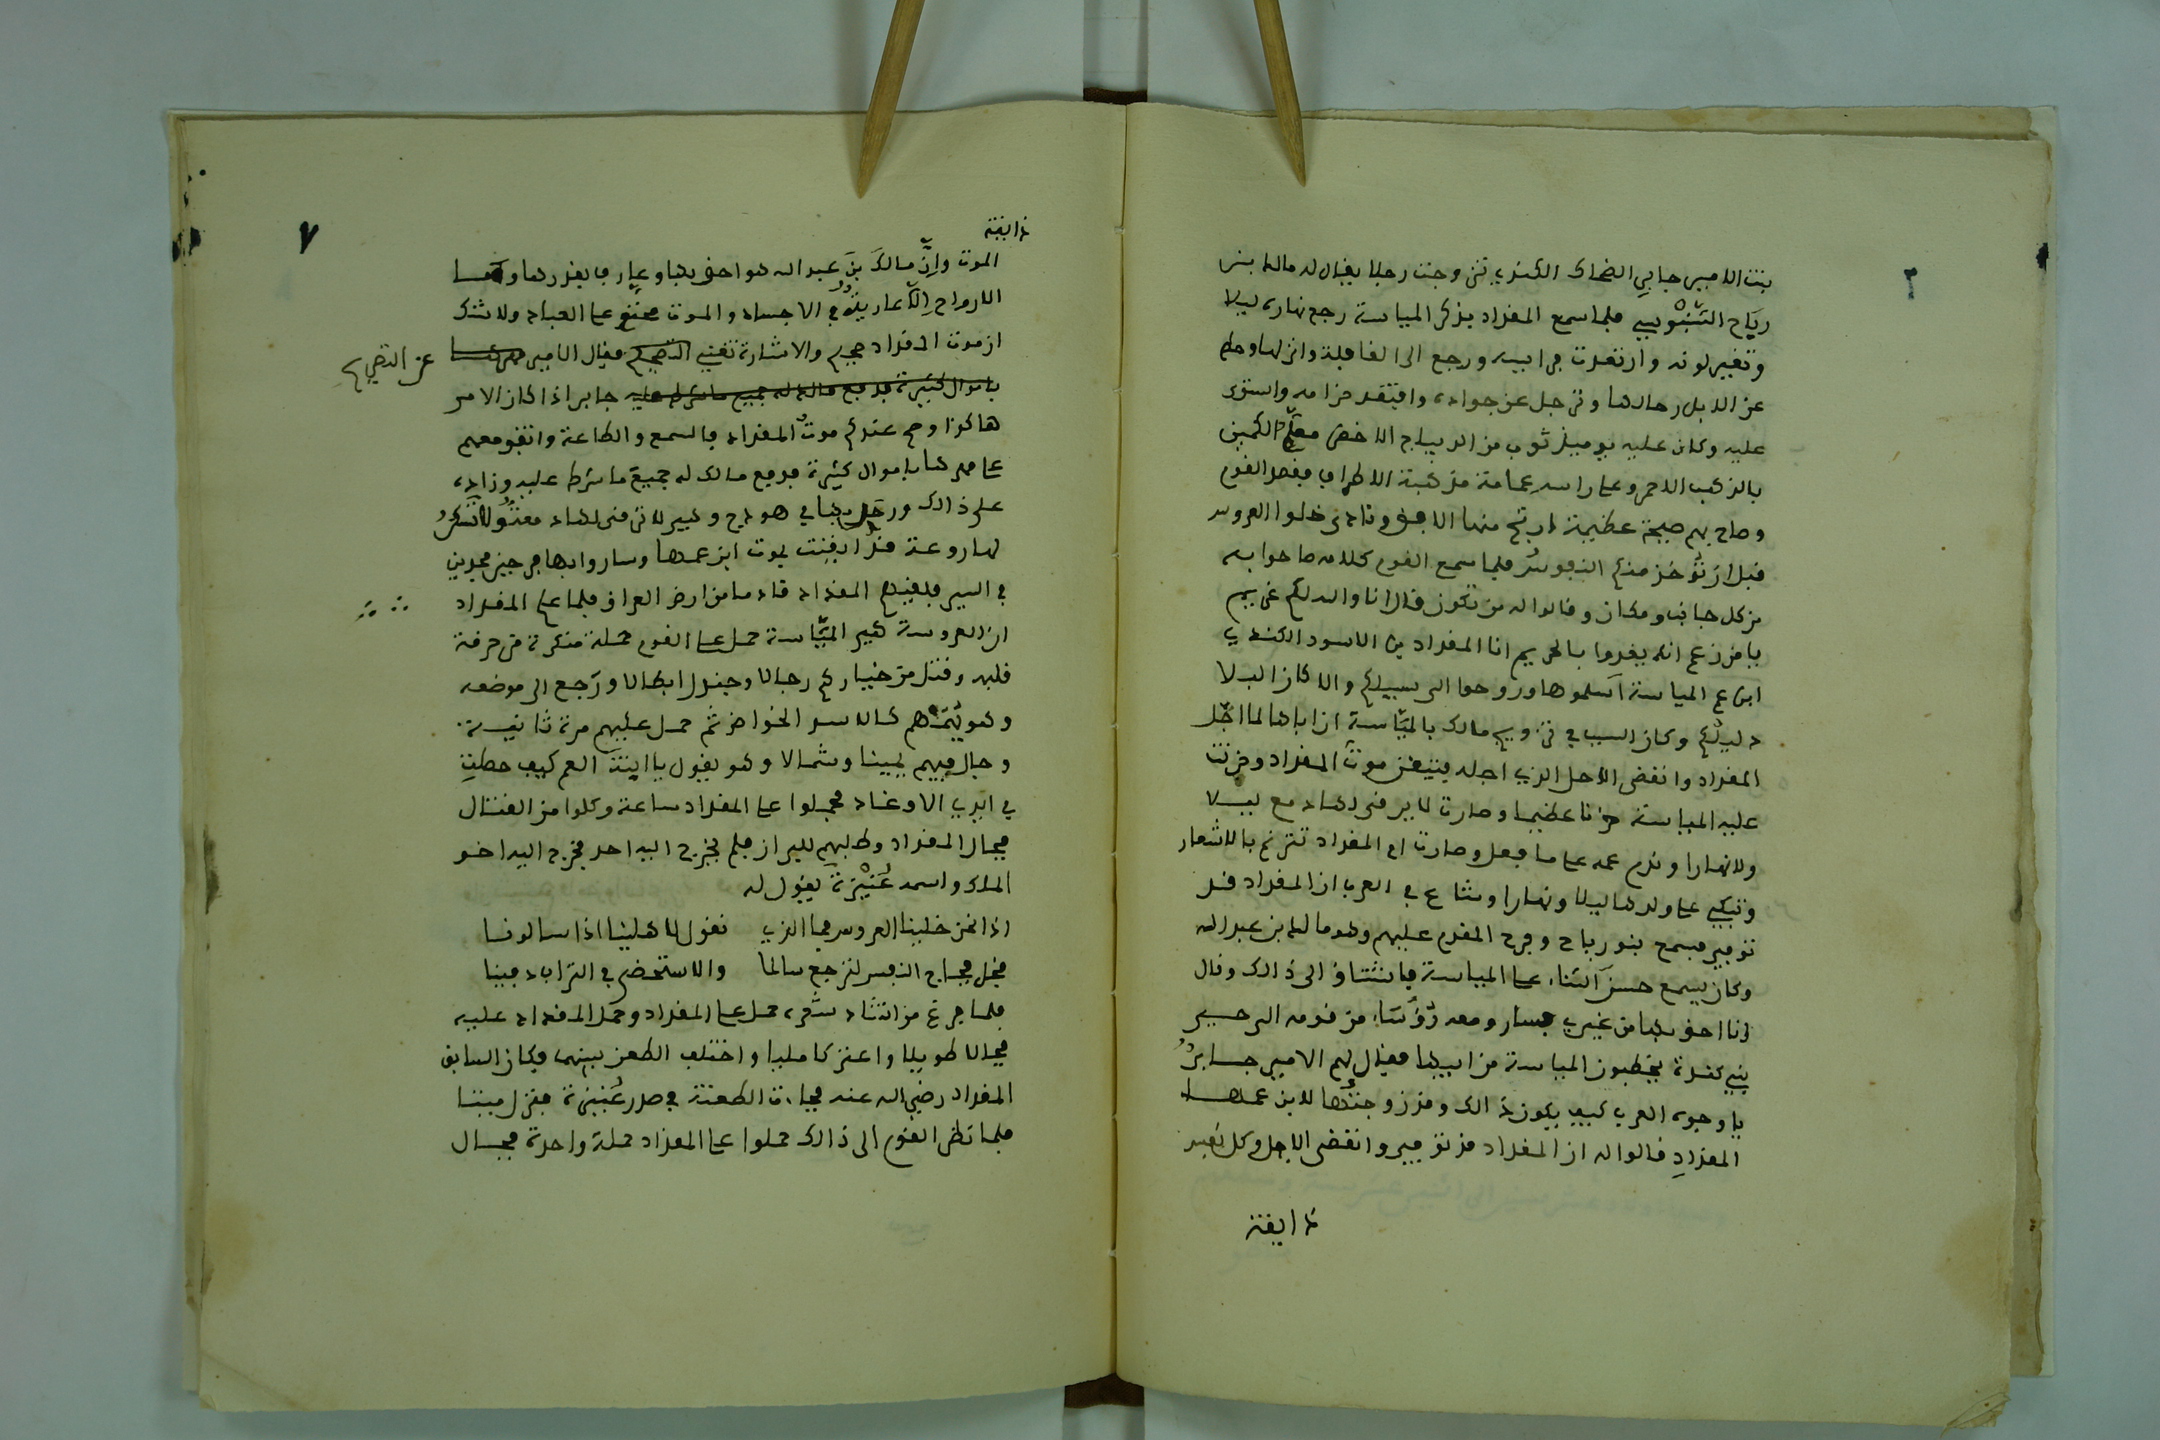 بنت الامير جابر الضحاك الكندي تزوجت رجلا يقال له مالك بن
رياح فلما سمع المقداد بذكر المياسة رجع نهاره ليلا
وتغير لونه وارتعدت فرايسه ورجع الى القافلة وانزلها وحط
عن الابل رحالها وترجل عن جواده وافتقد حزامه واستوى
عليه وكان عليه يوميذ ثوب من الديباج الاخضر معلم الكمين
بالذهب الاحمر وعلى راسه عمامة مذهبة الاطراف فقصد القوم
وصاح بهم صيحة عظيمة ارتج منها الافق ونادى خلوا العروس
قبل ان تؤخذ منكم النفوس فلما سمع القوم كلامه صاحوا به
من كل جانب ومكان وقالوا له من تكون قال انا والله لكم غريم
يا من زعم انه يغدوا بالحريم انا المقداد بن الاسود الكندي
ابن عم المياسة اسلموها وروحوا الى سبيلكم والا كان البلا
دليلكم وكان السبب في تزويج مالك بالمياسة ان اباها لما اجل
المقداد وانقضى الاجل الذي اجله فتيقن موت المقداد وحزنت
عليه المياسة حزنا عظيما وصارت لا يرقى لها دمع ليلا
ولا نهارا وندم عمه على ما فعل وصارت ام المقداد تترنم بالاشعار
وتبكي على ولدها ليلا ونهارا وشاع في العرب ان المقداد قد
توفي فسمع بنو رياح وفرح المقدم عليهم وهو مالك ابن عبد الله
وكان يسمع حسن الثناء على المياسة فاشتاق الى ذالك وقال
انا احق بها من غيري فسار ومعه رؤساء من قومه الى حي
بني كندة يخطبون المياسة من ابيها فقال لهم الامير جابر
يا وجوه العرب كيف يكون ذالك وقد زوجتها لابن عمها
المقداد قالوا له ان المقداد قد توفي وانقضى الاجل وكل نفس
ذايقة
٧
ذايقة
الموت وان مالك بن عبد الله هو احق بها وعارف بقدرها وما
الارواح الا عارية في الاجساد والموت محتم على العباد ولا شك
ان موت المقداد صحيح والاشارة تغني عن التصريح فقال الامير
جابر اذا كان الامر
هاكذا وصح عندكم موت المقداد فالسمع والطاعة واتفق معهم
على مهرها باموال كثيرة فدفع مالك له جميع ما شرط عليه وزاده
على ذالك ورحل بها في هودج وهي لا ترقى لها دمعة ولا تسكن
لها روعة قد ايقنت بموت ابن عمها وساروا بها فرحين مجدين
في السير فلقيهم المقداد قادما من ارض العراق فلما علم المقداد
ان العروسة هي المياسة حمل على القوم حملة منكرة من حرقة
قلبه وقتل من خيارهم رجالا وجندل ابطالا ورجع الى موضعه
وهو كالاسد الخواض ثم حمل عليهم مرة ثانية
وجال فيهم يمينا وشمالا وهو يقول يا ابنة العم كيف حصلت
في ايدي الاوغاد فحملوا على المقداد ساعة وكلوا من القتال
فجال المقداد وطلبهم للبراز فلم يخرج اليه احد فخرج اليه اخو
الملك واسمه عنيزة يقول له
اذا نحن خلينا العروس فما الذي نقول لاهلينا اذا سالونا
فخل فجاج النفس لترجع سالما والا ستضحى في التراب دفينا
فلما فرغ من انشاد شعره حمل على المقداد وحمل المقداد عليه
فجالا طويلا واعتركا مليا واختلف الطعن بينهما فكان السابق
المقداد رضي الله عنه فجاءت الطعنة في صدر عنيزة فنزل ميتا
فلما نظر القوم الى ذالك حملوا على المقداد حملة واحدة فجال